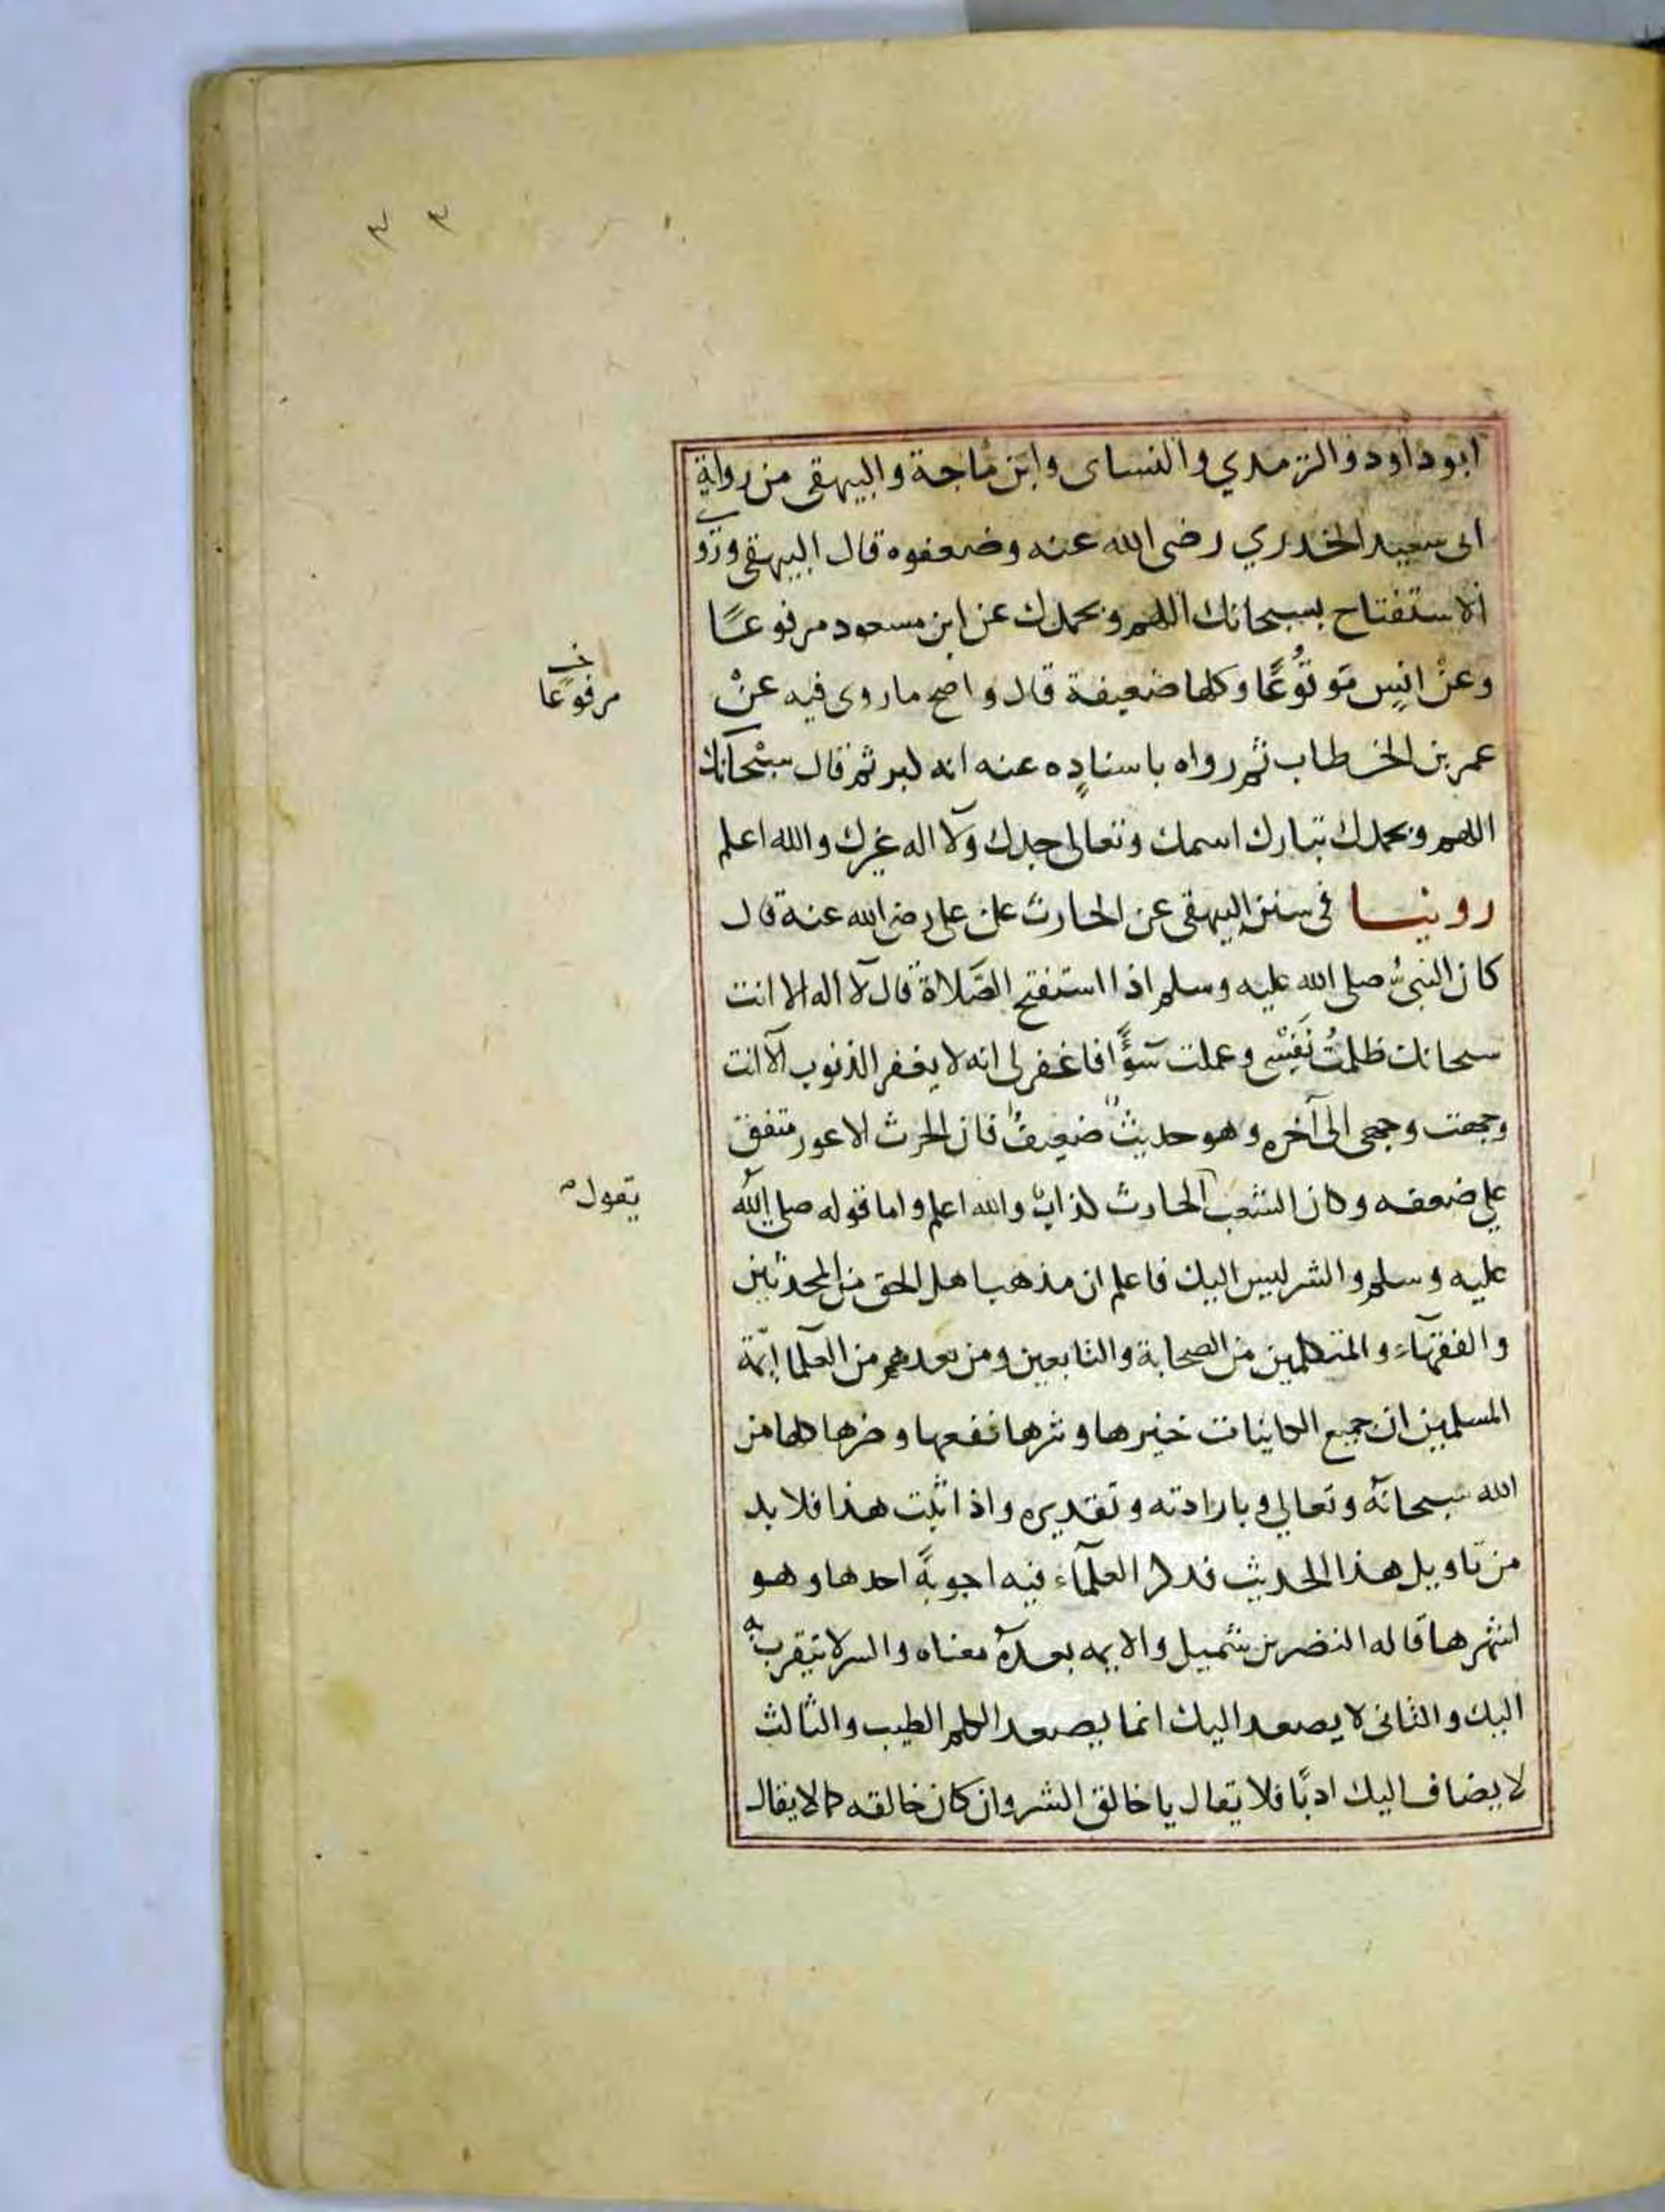 ابو داود والترمدي والنساى وابن ماجة والبيهقى من رواية
ابى سعيد الخدري رضى الله عنه وضعفوه قال البيهقى وروى
الاستفتاح بسبحانك اللهم وبحمدك عن ابن مسعود مرفوعًا
وعنْ انسٍ موقُوعًا وكلها ضعيفة قال واصح ما روى فيه عنْ
مرفوعًا خ
عمر بن الخطاب ثم رواه باسنادِه عنه انه كبر ثم قال سبْحانك
اللهم وبحمدك تبارك اسمك وتعالى جدك ولا اله غيرك والله اعلم
روينا فى سنن البيهقى عن الحارث عن على رضى الله عنه قال
كان النبىُّ صلى الله عليه وسلم اذا استفتح الصَّلاة قال لا اله الا انت
سبحانك ظلمتُ نَفْسِى وعملت سوًٓا فاغفر لى انه لا يغفر الذنوب الا انت
وجهت وجهى الى آخره وهو حديثٌ ضعيفٌ فان الحرث الاعور متفق
على ضعفه وكان الشعبى الحارث كذابٌ والله اعلم واما قوله صلى الله
يقول صح
عليه وسلم والشر ليس اليك فاعلم ان مذهب اهل الحق من المحدثين
والفقهآء والمتكلمين من الصحابة والتابعين ومن بعدهم من العلما ايمّة
المسلمين ان جميع الكاينات خيرها وشرها نفعها وضرها كلها من
الله سبحانه وتعالي وبارادته وتقديره واذا ثبت هذا فلا بد
من تاويل هذا الحديث فذكر العلمآء فيه اجوبةً احدها وهو
اشهرها قاله النضر بن شميل والايمه بعده معناه والشر لا يتقرب به
اليك والثانى لا يصعد اليك انما يصعد الكلم الطيب والثالث
لا يضاف اليك ادبًا فلا يقال يا خالق الشر وان كان خالقه كما لا يقال